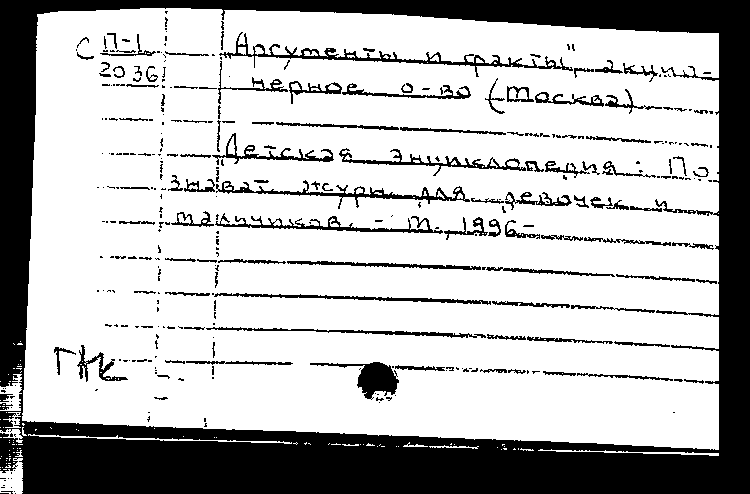 С П-1
2036
"Аргументы и факты", акцио-
нерное о-во (Москва)
Детская энциклопедия: По-
знават. журн. для девочек и
мальчиков. - М., 1996-
ГНК